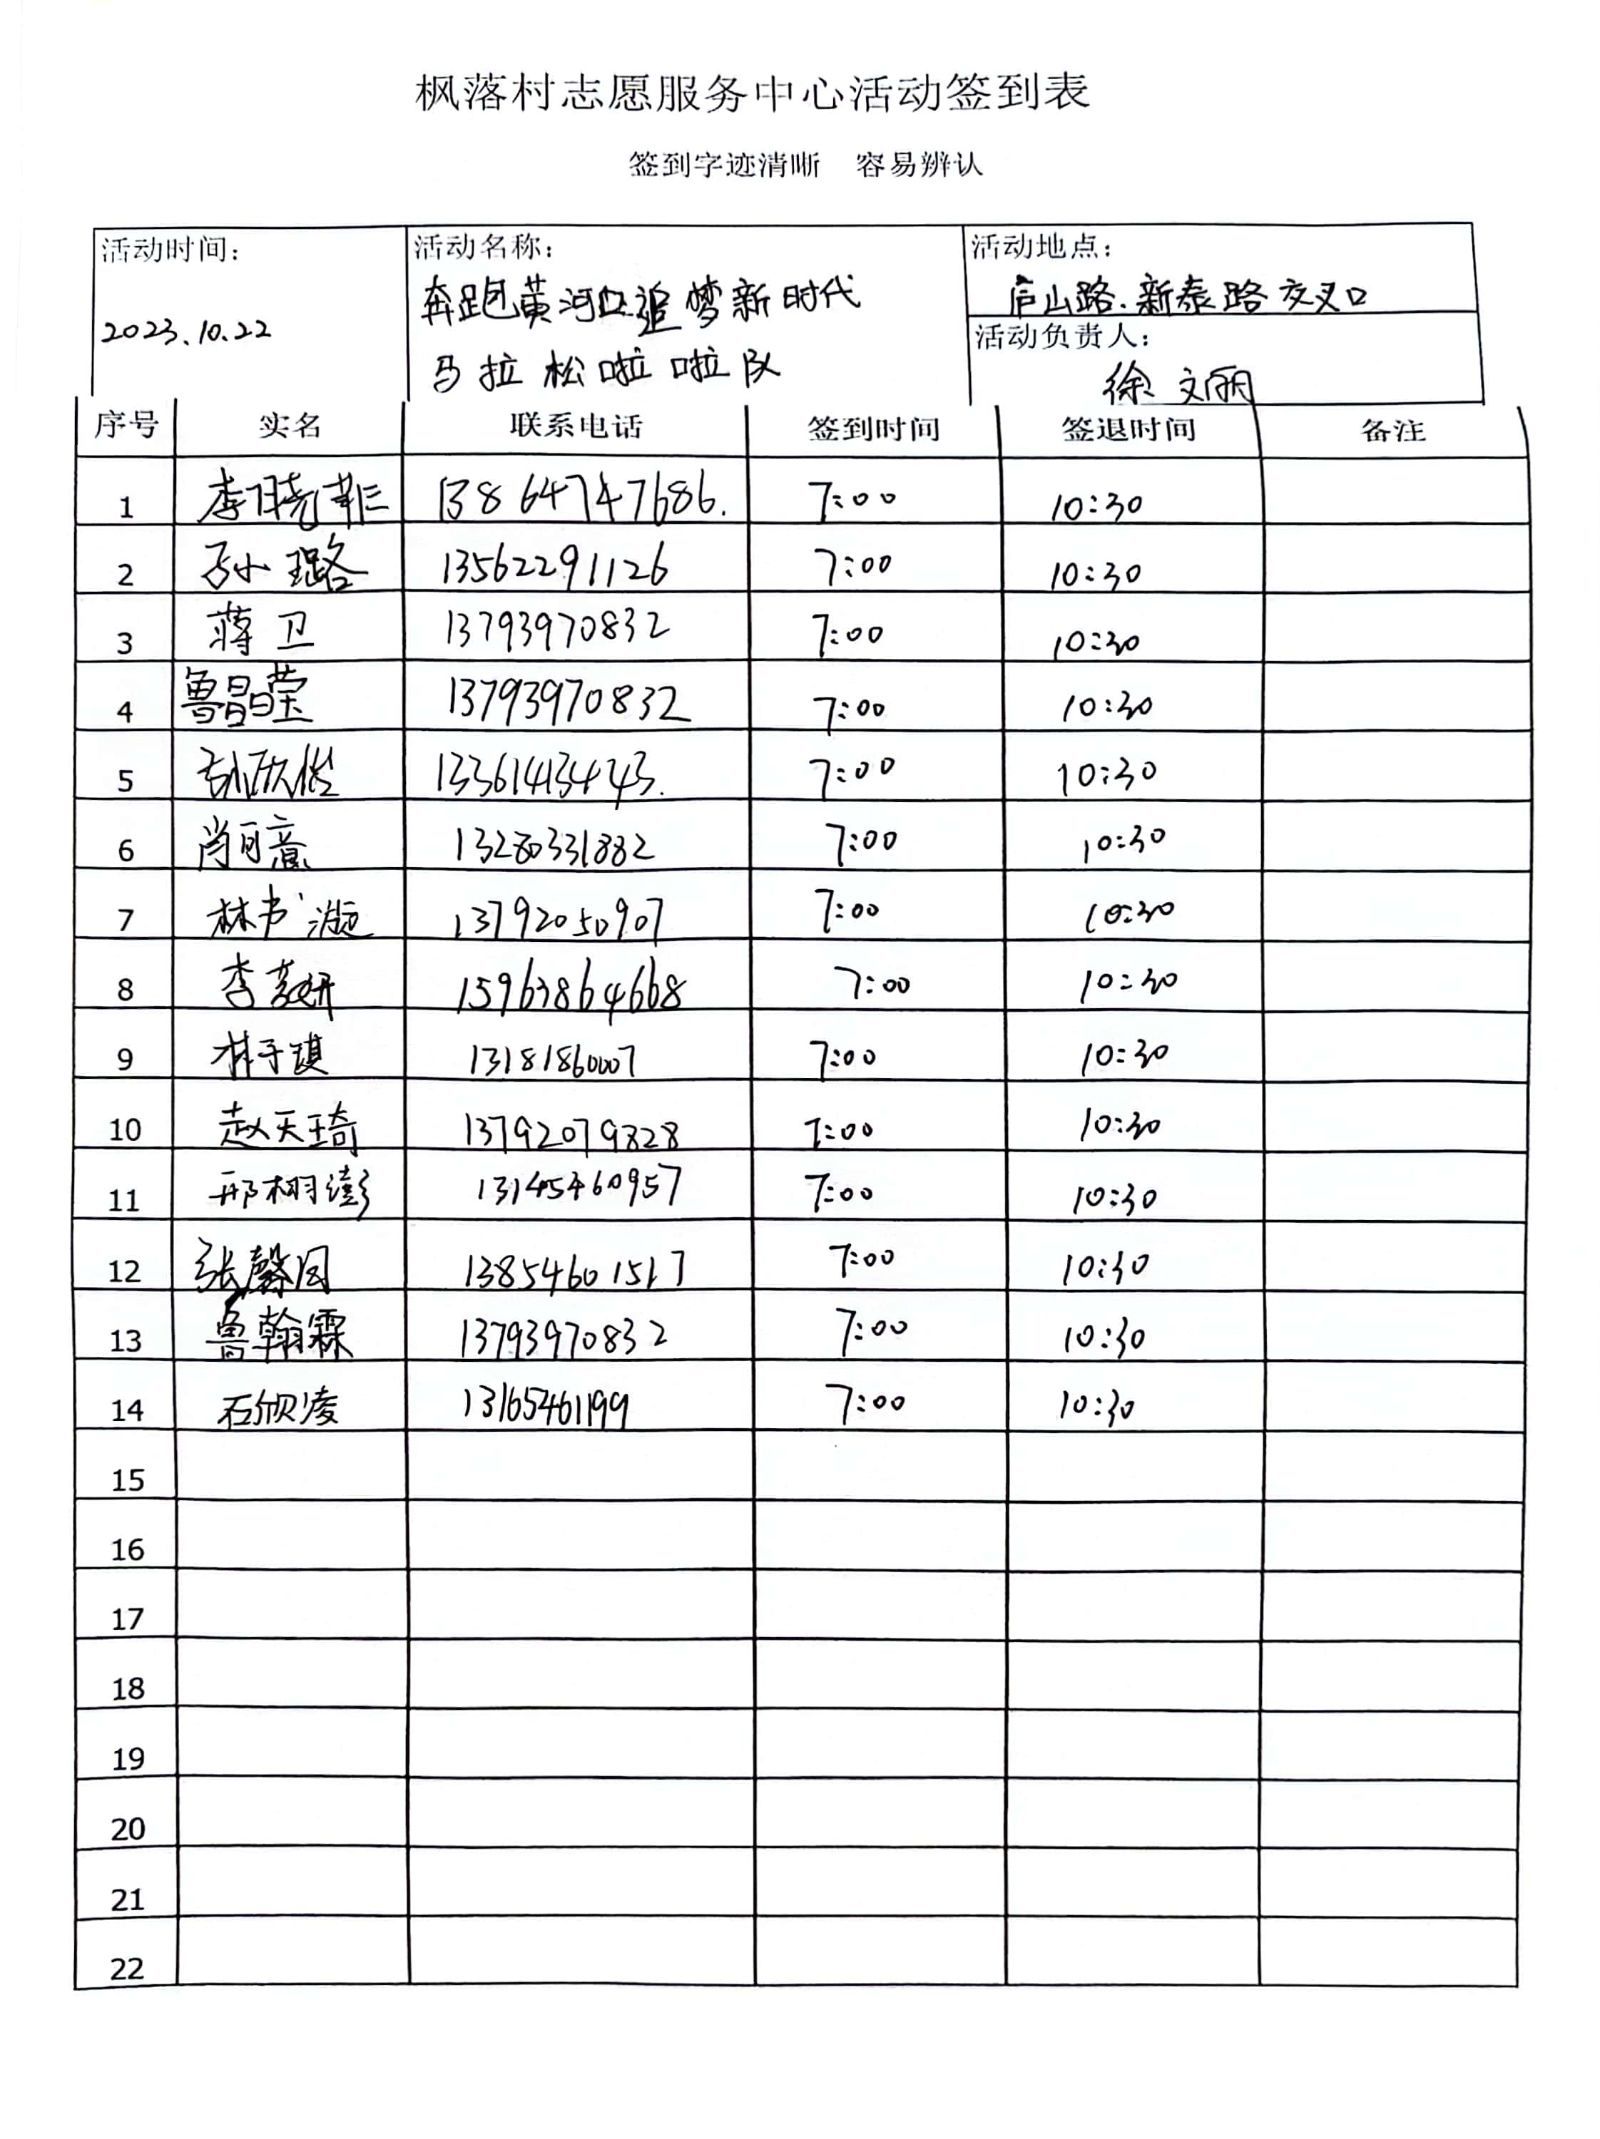 枫落村志愿服务中心活动签到表
签到字迹清晰 容易辨认
活动时间: 活动名称: 活动地点:
奔跑黄河口追梦新时代 庐山路.新泰路交叉口
2023.10.22 活动负责人:
马拉松啦啦队 徐文丽
序号 实名 联系电话 签到时间 签退时间 备注
1 李晓菲 13864747686. 7:00 10:30
2 孙小璐 13562291126 7:00 10:30
3 蒋卫 13793970832 7:00 10:30
4 鲁晶莹 13793970832 7:00 10:30
5 13361434243. 7:00 10:30
6 肖可意 13280331882 7:00 10:30
7 林书漩 13792050907 7:00 10:30
8 李彦妍 15963864668 7:00 10:30
9 林子琪 13181860007 7:00 10:30
10 赵天琦 13792079828 7:00 10:30
11 邢栩澎 13145460957 7:00 10:30
12 张馨月 13854601517 7:00 10:30
13 鲁翰霖 13793970832 7:00 10:30
14 石欣凌 13165461199 7:00 10:30
15
16
17
18
19
20
21
22